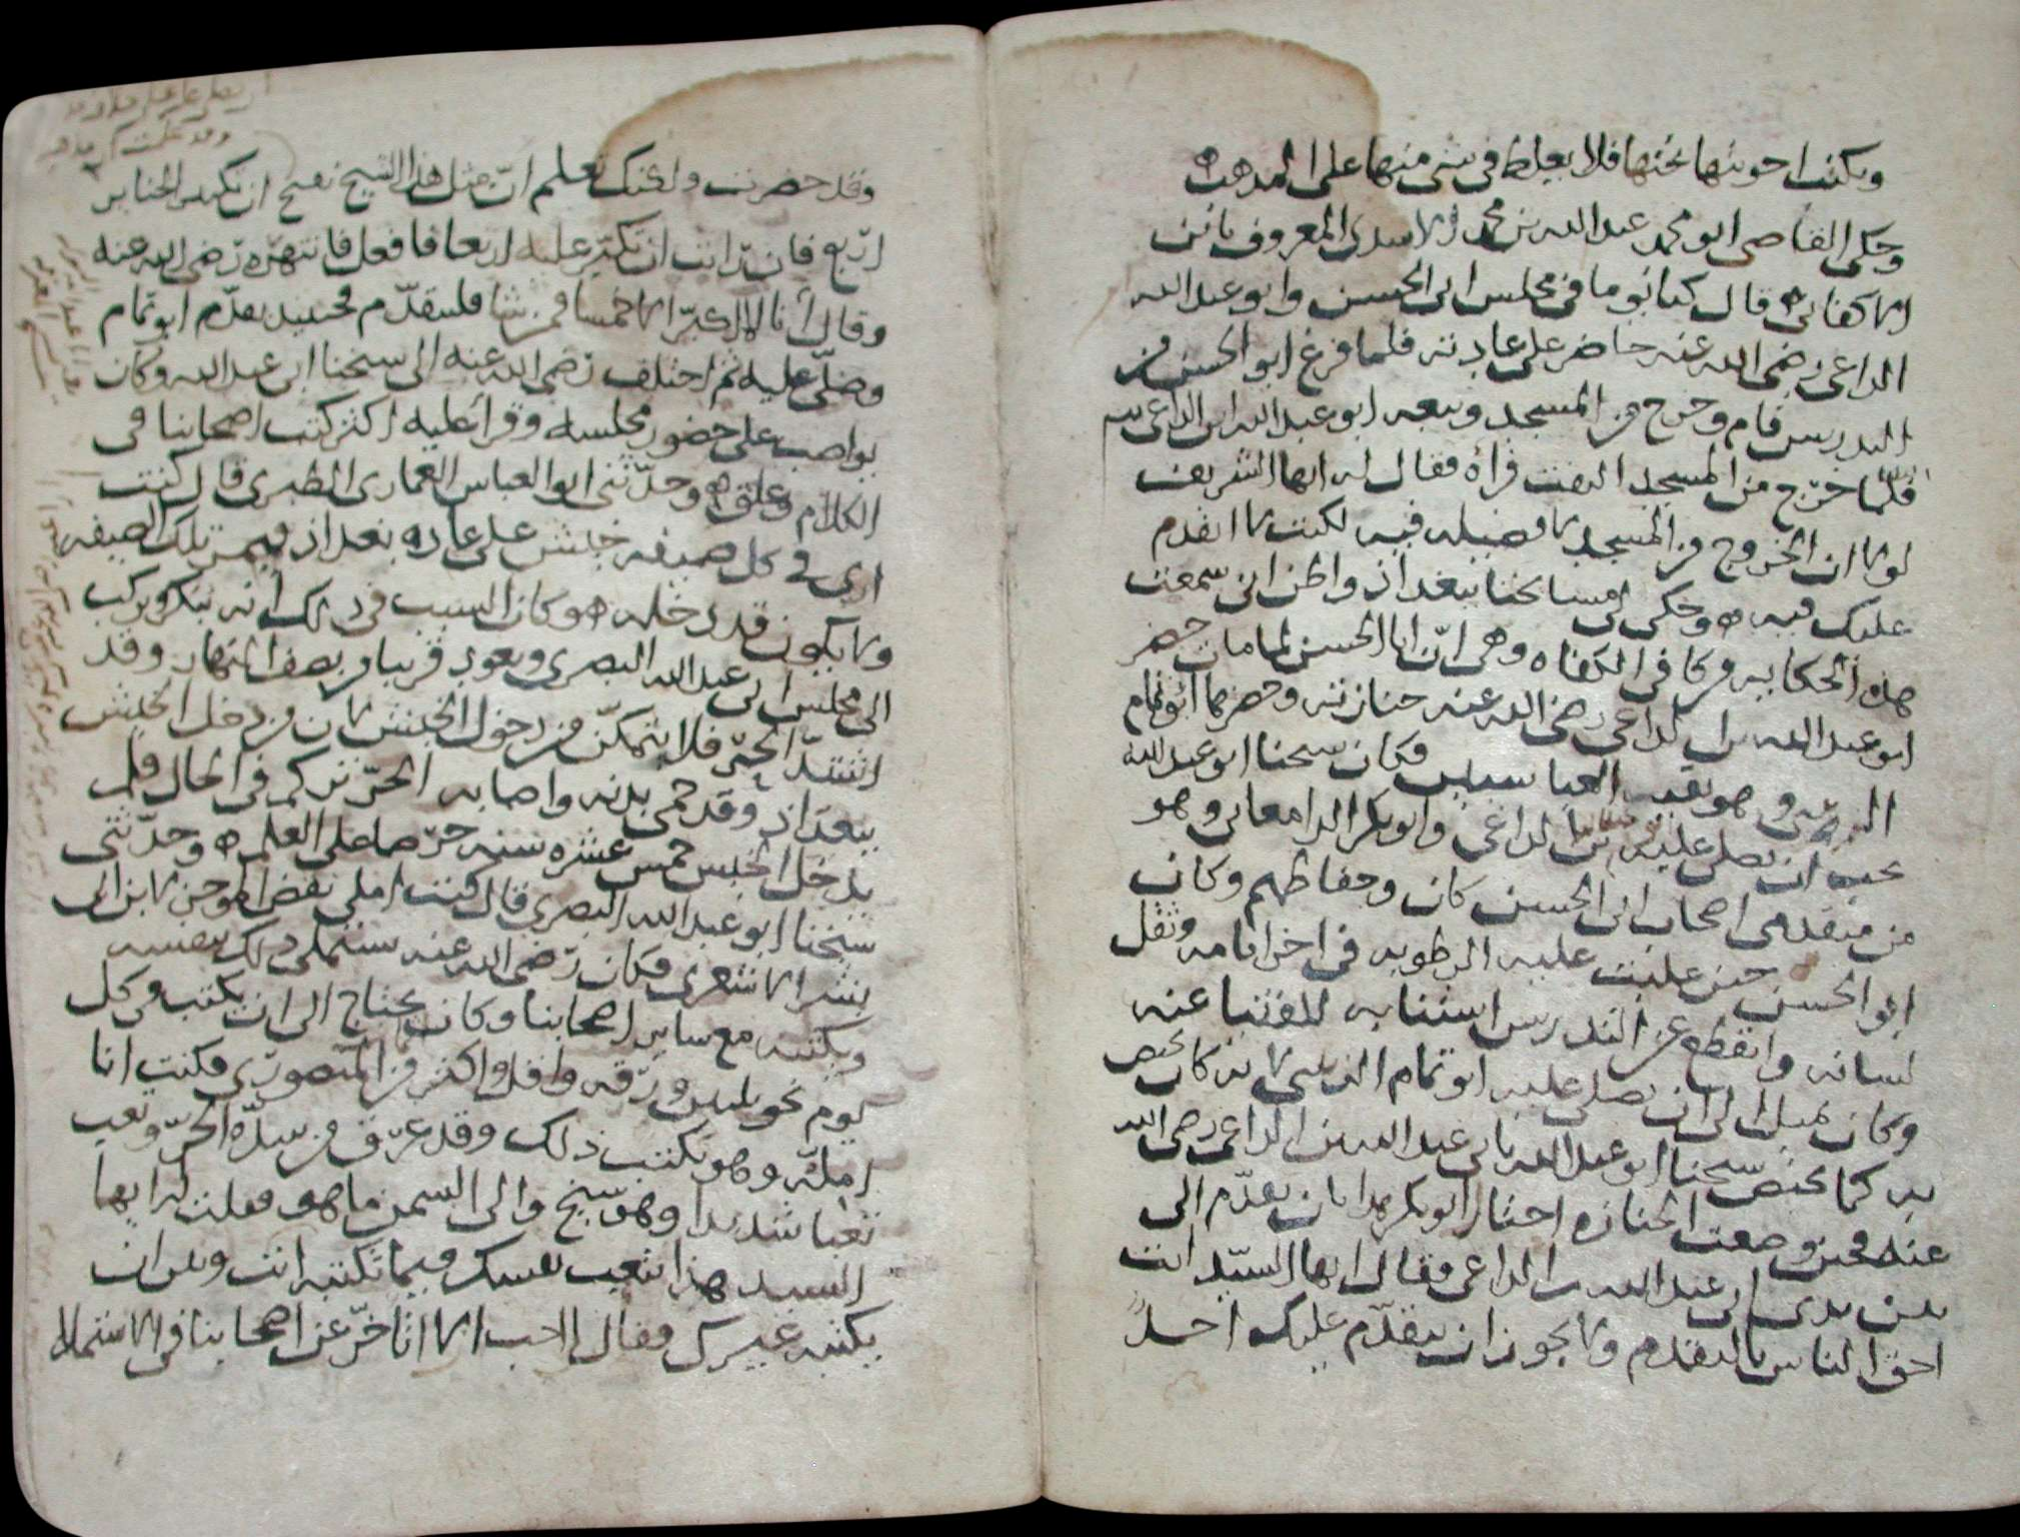 ويكتب اجوبتها تحتها فلا يغلط في شي منها على المذهب ه
وحكى القاضي ابو محمد عبد الله بن محمد الاسدي المعروف بابن
الاكفاني ه قال كنا يوما في مجلس ابي الحسن وابو عبد الله
الداعي رضي الله عنه حاضر على عادته فلما فرغ ابو الحسن من
التدريس قام وخرج من المسجد وتبعه ابو عبد الله ابن الداعي
فلما خرج من المسجد التفت فرأه فقال له ايها الشريف
لولا ان الخروج من المسجد لا فضيله فيه لكنت لا اتقدم
عليك فيه ه وحكى لي مشايخنا ببغداذ واظن اني سمعت
هذه الحكايه من كافي الكفاه وهي انّ ابا الحسن لما مات حضر
ابو عبد الله بن الداعي رضي الله عنه جنازته وحضرها ابو تمام
الزينبي وهو نقيب العباسيين فكان شيخنا ابو عبد الله
يحب ان يصلي عليه بن الداعي وابو بكر الدامغاني وهو
من متقدمي اصحاب ابي الحسن كان وحفاظهم وكان
ابو الحسن حين غلبت عليه الرطوبه في اخر ايامه وثقل
لسانه وانقطع عن التدريس استنابه للفتيا عنه
وكان يميل الى ان يصلي عليه ابو تمام الزينبي لانه كان يختص
به كما يختص شيخنا ابو عبد الله بابي عبد الله بن الداعي رضي الله
عنه فحين وضعت الجنازه اختار ابو بكر هذا بان تقدّم الى
بين يدي ابي عبد الله بن الداعي فقال ايها السيّد انت
احق الناس بالتقدم ولا يجوز ان يتقدّم عليك احدٌ
وقد حضرت ولكنك تعلم انّ مثل هذا الشيخ يقبح ان يكبر الجنايز
اربع فان رّايت ان تكبّر عليه اربعا فافعل فانتهره رّضي الله عنه
وقال أنا لا اكبّر الا خمسا فمن شا فليتقدّم فحينيذ تقدّم ابو تمام
وصلّى عليه ثم اختلف رّضي الله عنه الى شيخنا ابي عبد الله وكان
يواضب على حضور مجلسه وقرأ عليه اكثر كتب اصحابنا في
الكلام وعلق ه وحدّثني ابو العباس العماري الطبري قال كنت
ارى في كل صيفه خيش على عاده بغداذ فيمر تلك الصيفه
ولا يكون قد دخله ه وكان السبب في ذلك انه يبكر ويركب
الى مجلس ابي عبد الله البصري ويعود قريبا من نصف النهار وقد
اشتدّ الحرّ فلا يتمكّن من دخول الخيش لان من دخل الخيش
ببغداذ وقد حمى بدنه واصابه الحرّ تزكم في الحال فلم
يدخل الخيش خمس عشره سنه حرّصا على العلم ه وحدّثني
شيخنا ابو عبد الله البصري قال كنت املي نقض الموجز لابن ابي
بشر الاشعري فكان رّضي الله عنه يستملي ذلك بنفسه
ويكتبه مع ساير اصحابنا وكان يحتاج الى ان يكتب في كل
يوم نحو ثلثين ورّقه واقل واكثر من المنصورّي فكنت انا
امليه وهو يكتب ذلك وقد عرّق من شدّه الحرّ وتعب
تعبا شديدا وهو شيخ والى السمن ما هو فقلت له ايها
السيد هذا يتعب نفسك فيما تكتبه انت ومر ان
يكتبه غيرك فقال لا احب الا اتاخّر عن اصحابنا في الاستملا